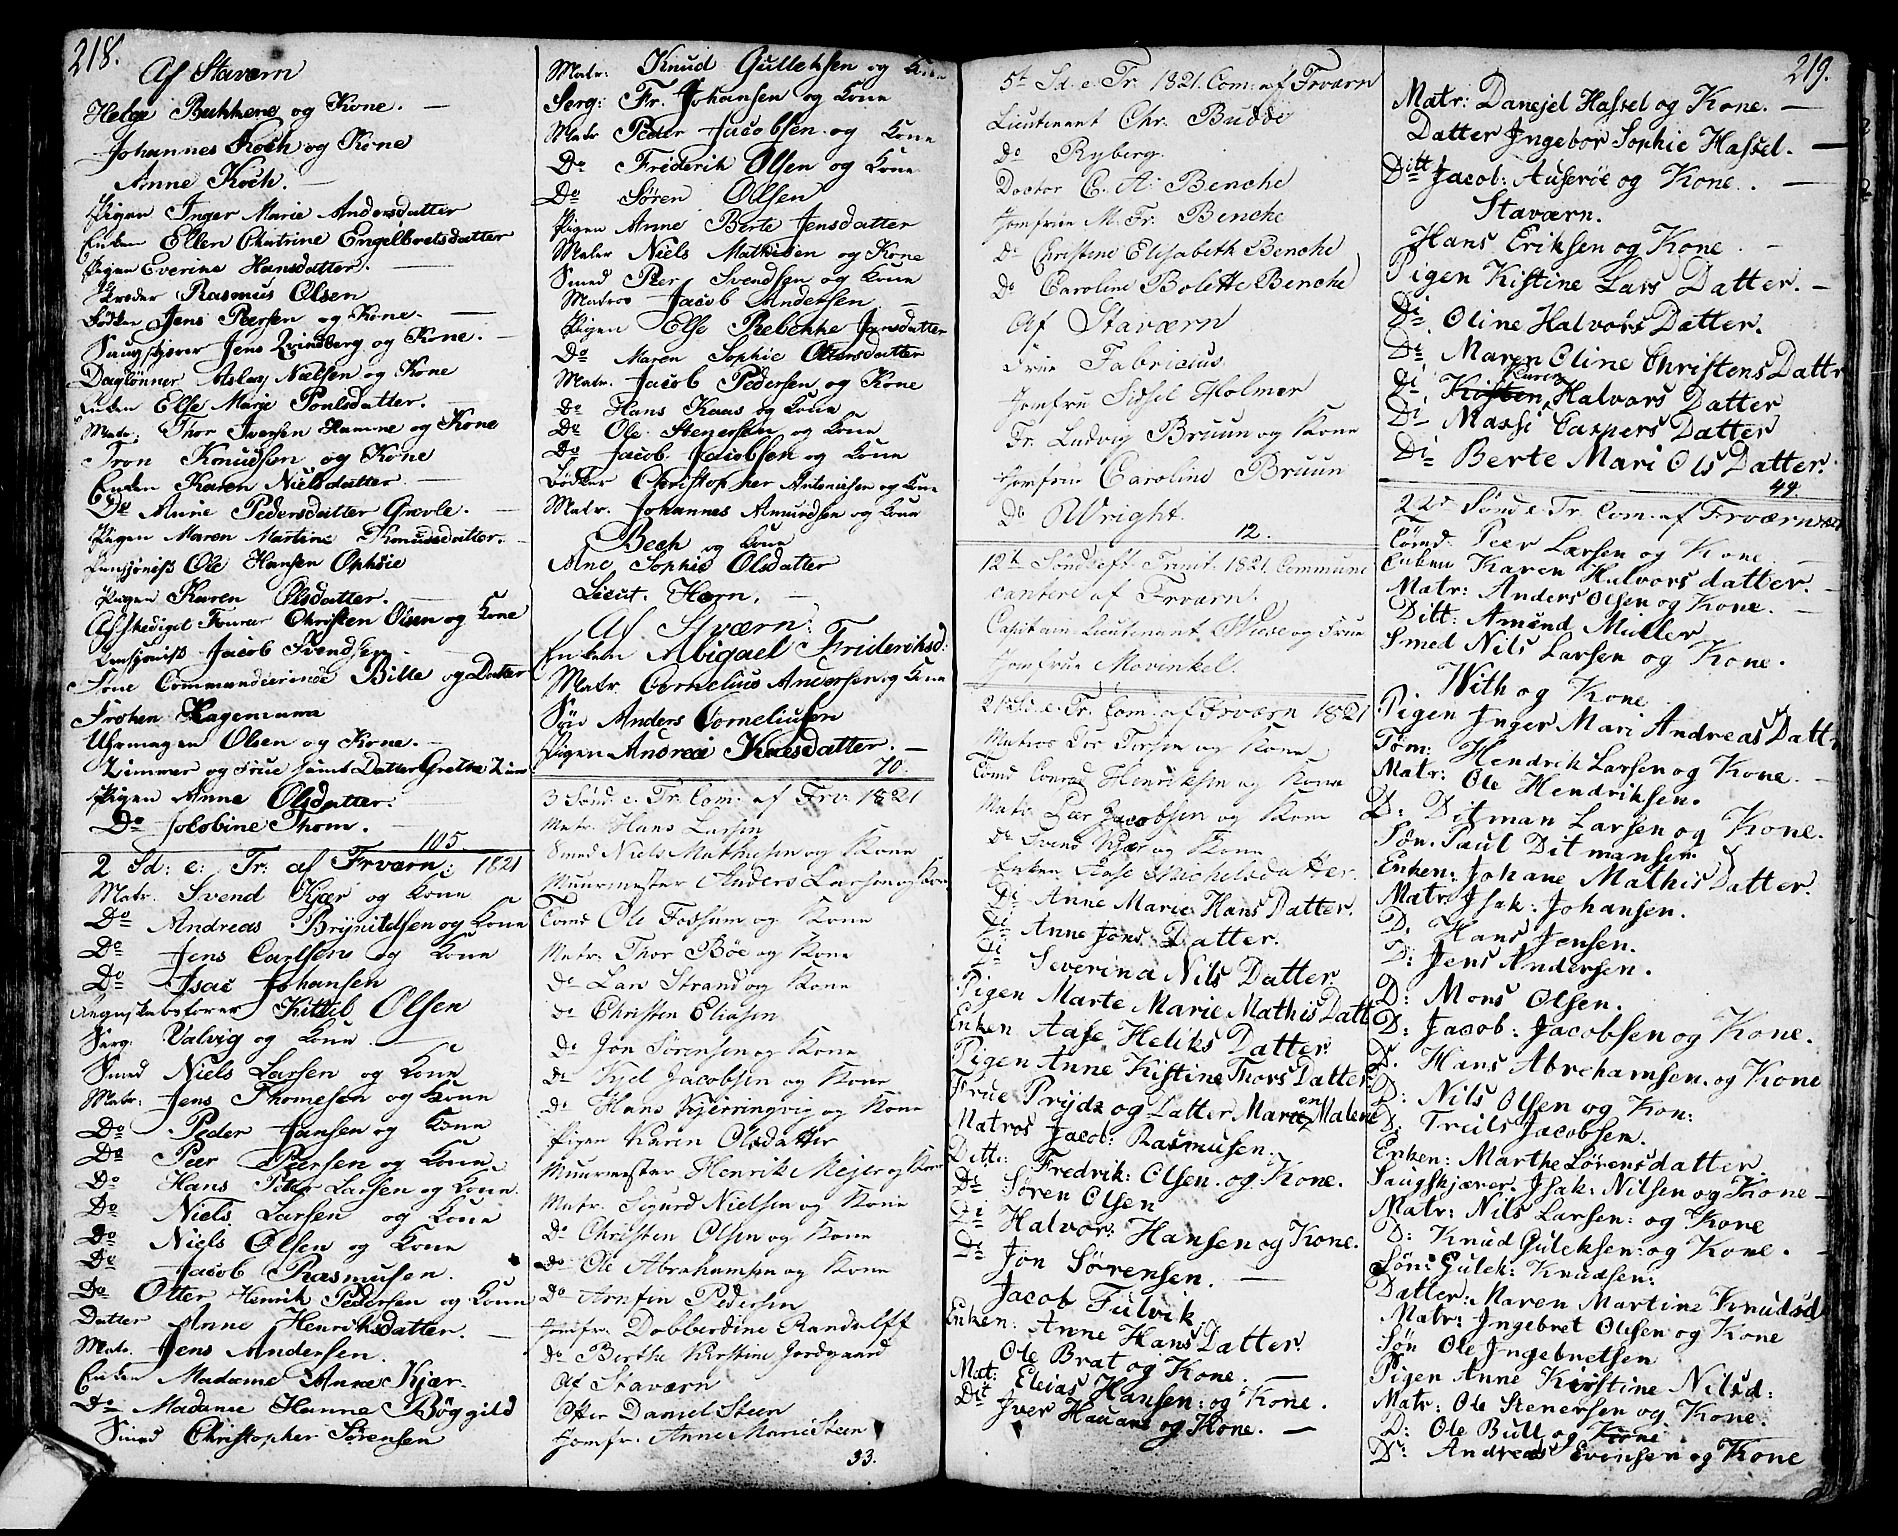 218.
Af Staværn
Helge Bakkene og Kone.
Johannes Koch og Kone
Anne Koch.
Pigen Inger Marie Andersdatter
Enken Ellen Chatrine Engelbretsdatter
Pigen Everine Hansdatter.
Rasmus Olsen
Jens Peersen og Kone.
Jens Qvindberg og Kone.
Daglönner Aslag Nielsen og Kone
Enken Else Marie Poulsdatter.
Matr: Thor Iversen Hamne og Kone
Tron Knudsen og Kone
Enken Karen Nielsdatter
Do Anne Pedersdatter Grevle.
Pigen Maren Martine Knudsdatter.
Ole Hansen
Pigen Karen Olsdatter.
Afskediget Christen Olsen og Kone
Jacob Svendsen
Commanderende Bille og Datter
Frøken Hagemann
Uhrmager Olsen og Kone.
Zimmer og Frue samt Datter Grethe Zim
Pigen Anne Olsdatter.
Do Jacobine Thom.
105.
2 Sd: e: Tr: af Frværn: 1821
Matr. Svend Kjær og Kone
Do Andreas Brynildsen og Kone
Do Jens Carlsen og Kone
Do Isac Johansen
Regnskabsfører Kittil Olsen
Serg: Valvig og Kone
Smed Niels Larsen og Kone
Matr: Jens Thomesen og Kone
Do Peder Jansen og Kone
Do Peer Peersen og Kone
Do Hans Peter Larsen og Kone
Do Niels Larsen og Kone
Do Niels Olsen og Kone
Do Jacob Rasmusen.
Do Otter Henrik Pedersen og Kone
Datter Anne Henriksdatter.
Matr. Jens Andersen.
Enken Madame Anne Kjær
Do Madame Hanne Böggild
Smed Christopher Sörensen
Matr: Knud Gulleksen og Kone
Serg: Fr. Johansen og Kone
Matr Peder Jacobsen og Kone
Do Friderik Olsen og Kone
Do Sören Olsen
Pigen Anne Berte Jensdatter
Maler Niels Mathisen og Kone
Smed Peer Svendsen og Kone
Matros Jacob Andersen
Pigen Else Rebekke Jansdatter
Do Maren Sophie Ottersdatter
Matr. Jacob Pedersen og Kone
Do Hans Kaas og Kone
Do Ole Stenersen og Kone
Do Jacob Jacobsen og Kone
Bödker Christopher Antonissen og Kone
Matr. Johannes Amundsen og Kone
Bech og Kone
Ane Sophie Olsdatter
Lieut. Horn.
Af Stværn:
Enken Abigael Frideriksd:
Matr. Cornelius Andersen og Kone
Anders Corneliusen
Pigen Andrea Knudsdatter.
70.
3 Sönd. e. Tr. Com: af Frv. 1821
Matr. Hans Larsen
Smed Niels Mathiesen og Kone
Muurmester Anders Larsen og Kone
Tömd Ole Fossum og Kone
Matr. Thor Böe og Kone
Do Lars Strand og Kone
Do Christen Eliasen
Do Jon Sörensen og Kone
Do Kjel Jacobsen og Kone
Do Hans Kjerringvig og Kone
Pigen Karen Olsdatter
Muurmester Henrik Mejer og Kone
Matr. Sigurd Nielsen og Kone
Do Christen Olsen og Kone
Do Ole Abrahamsen og Kone
Do Arnfin Pedersen
Jomfr. Dobberdine Randulff
Do Berthe Kirstine Jordgaard
Af Staværn
Daniel Steen
Jomfr. Anne Marie Steen
33.
5te Sd. e. Tr. 1821. Com: af Frværn
Lieutenant Chr. Budde
Do Ryberg.
Doctor C. A. Benche
Jomfrue M. Fr. Benche
Do Christine Elisabeth Benche
Do Caroline Bolette Benche
Af Staværn
Frue Fabricius.
Jomfru Sidsel Holmer
Fr. Ludvig Bruun og Kone
Jomfrue Caroline Bruun
Do Wright.
12.
12te Sönd. eft. Trinit: 1821 Commune
cantere af Frværn.
Capitain Lieutenant Wiese og Frue
Jomfrue Movinkel.
21 Sd. e. Tr. Com. af Frværn 1821
Tömd Conrad Henriksen og Kone
Matr Peer Jacobsen og Kone
Do Svend Kjær og Kone
Enken Aase Michelsdatter.
Di Anne Marie Hans Datter.
Di Anne Jons Datter.
Di Severina Nils Datter
Pigen Marte Marie Mathis Datt
Enken Aase Heliks Datter
Pigen Anne Kistine Thors Datter
Frue Prydz og Datter Maren Malene
Matros Jacob: Rasmusen.
Ditt: Fredrik: Olsen. og Kone.
Di Sören Olsen
Di Halvor: Hansen og Kone.
Di Jon Sörensen.
Jacob Fulvik
Enken: Anne Hans Datter
Ole Brat og Kone.
Mat: Elias Hansen: og Kone.
Dit Iver Hauan og Kone.
219.
Matr: Daniel Hassel og Kone.
Datter Ingebor Sophie Hassel.
Ditt Jacob: Auseröe og Kone.
Staværn.
Hans Eriksen og Kone
Pigen Kistine Lars Datter.
Di Oline Halvors Datter.
Di Maren Oline Christens Datt
Di Karen Halvors Datter
Di Massi Caspers Datter
Di Berte Mari Ols Datter.
49.
22de Sönd e Tr. Com: af Frværn
Tömd. Peer Larsen og Kone
Enken Karen Halvors datter.
Matr: Anders Olsen og Kone.
Ditt: Amund Muller
Smed Nils Larsen og Kone.
With og Kone
Pigen Inger Mari Andreas Datt
Töm: Hendrik Larsen og Kone.
Matr: Ole Hendriksen.
D: Ditman Larsen og Kone.
Sön. Paul Ditmansen
Enken: Johane Mathis Datter.
Matr: Isak: Johansen.
D. Hans Jensen.
D: Jens Andersen.
D: Mons Olsen.
D: Jacob: Jacobsen og Kone.
D. Hans Abrehamsen. og Kone
D: Nils Olsen og Kon:
D. Truls Jacobsen.
Enken: Marthe Sörensdatter.
Saugskjærer Isak: Nilsen og Kone
Matr: Nils Larsen: og Kone
D: Knud Guleksen: og Kone.
Søn: Gulek: Knudsen:
Datter: Maren Martine Knudsd
Matr: Ingebret Olesen og Kone
Søn Ole Ingebretsen
Pigen Anne Kirstine Nilsd:
Matr: Ole Stenersen og Kone.
D: Ole Bull og Kone
D: Andreas Evensen og Kone